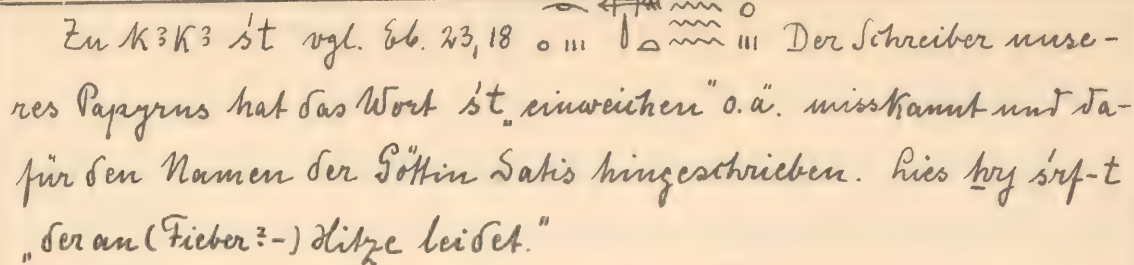 Zu k³k³ śt vgl. Eb. 23,18 Der Schreiber unse-
res Papyrus hat das Wort śt „einweichen" o. ä. misskannt und da-
für den Namen der Göttin Satis hingeschrieben. Lies ẖrj śrf-t
„der an (Fieber?-) Hitze leidet."